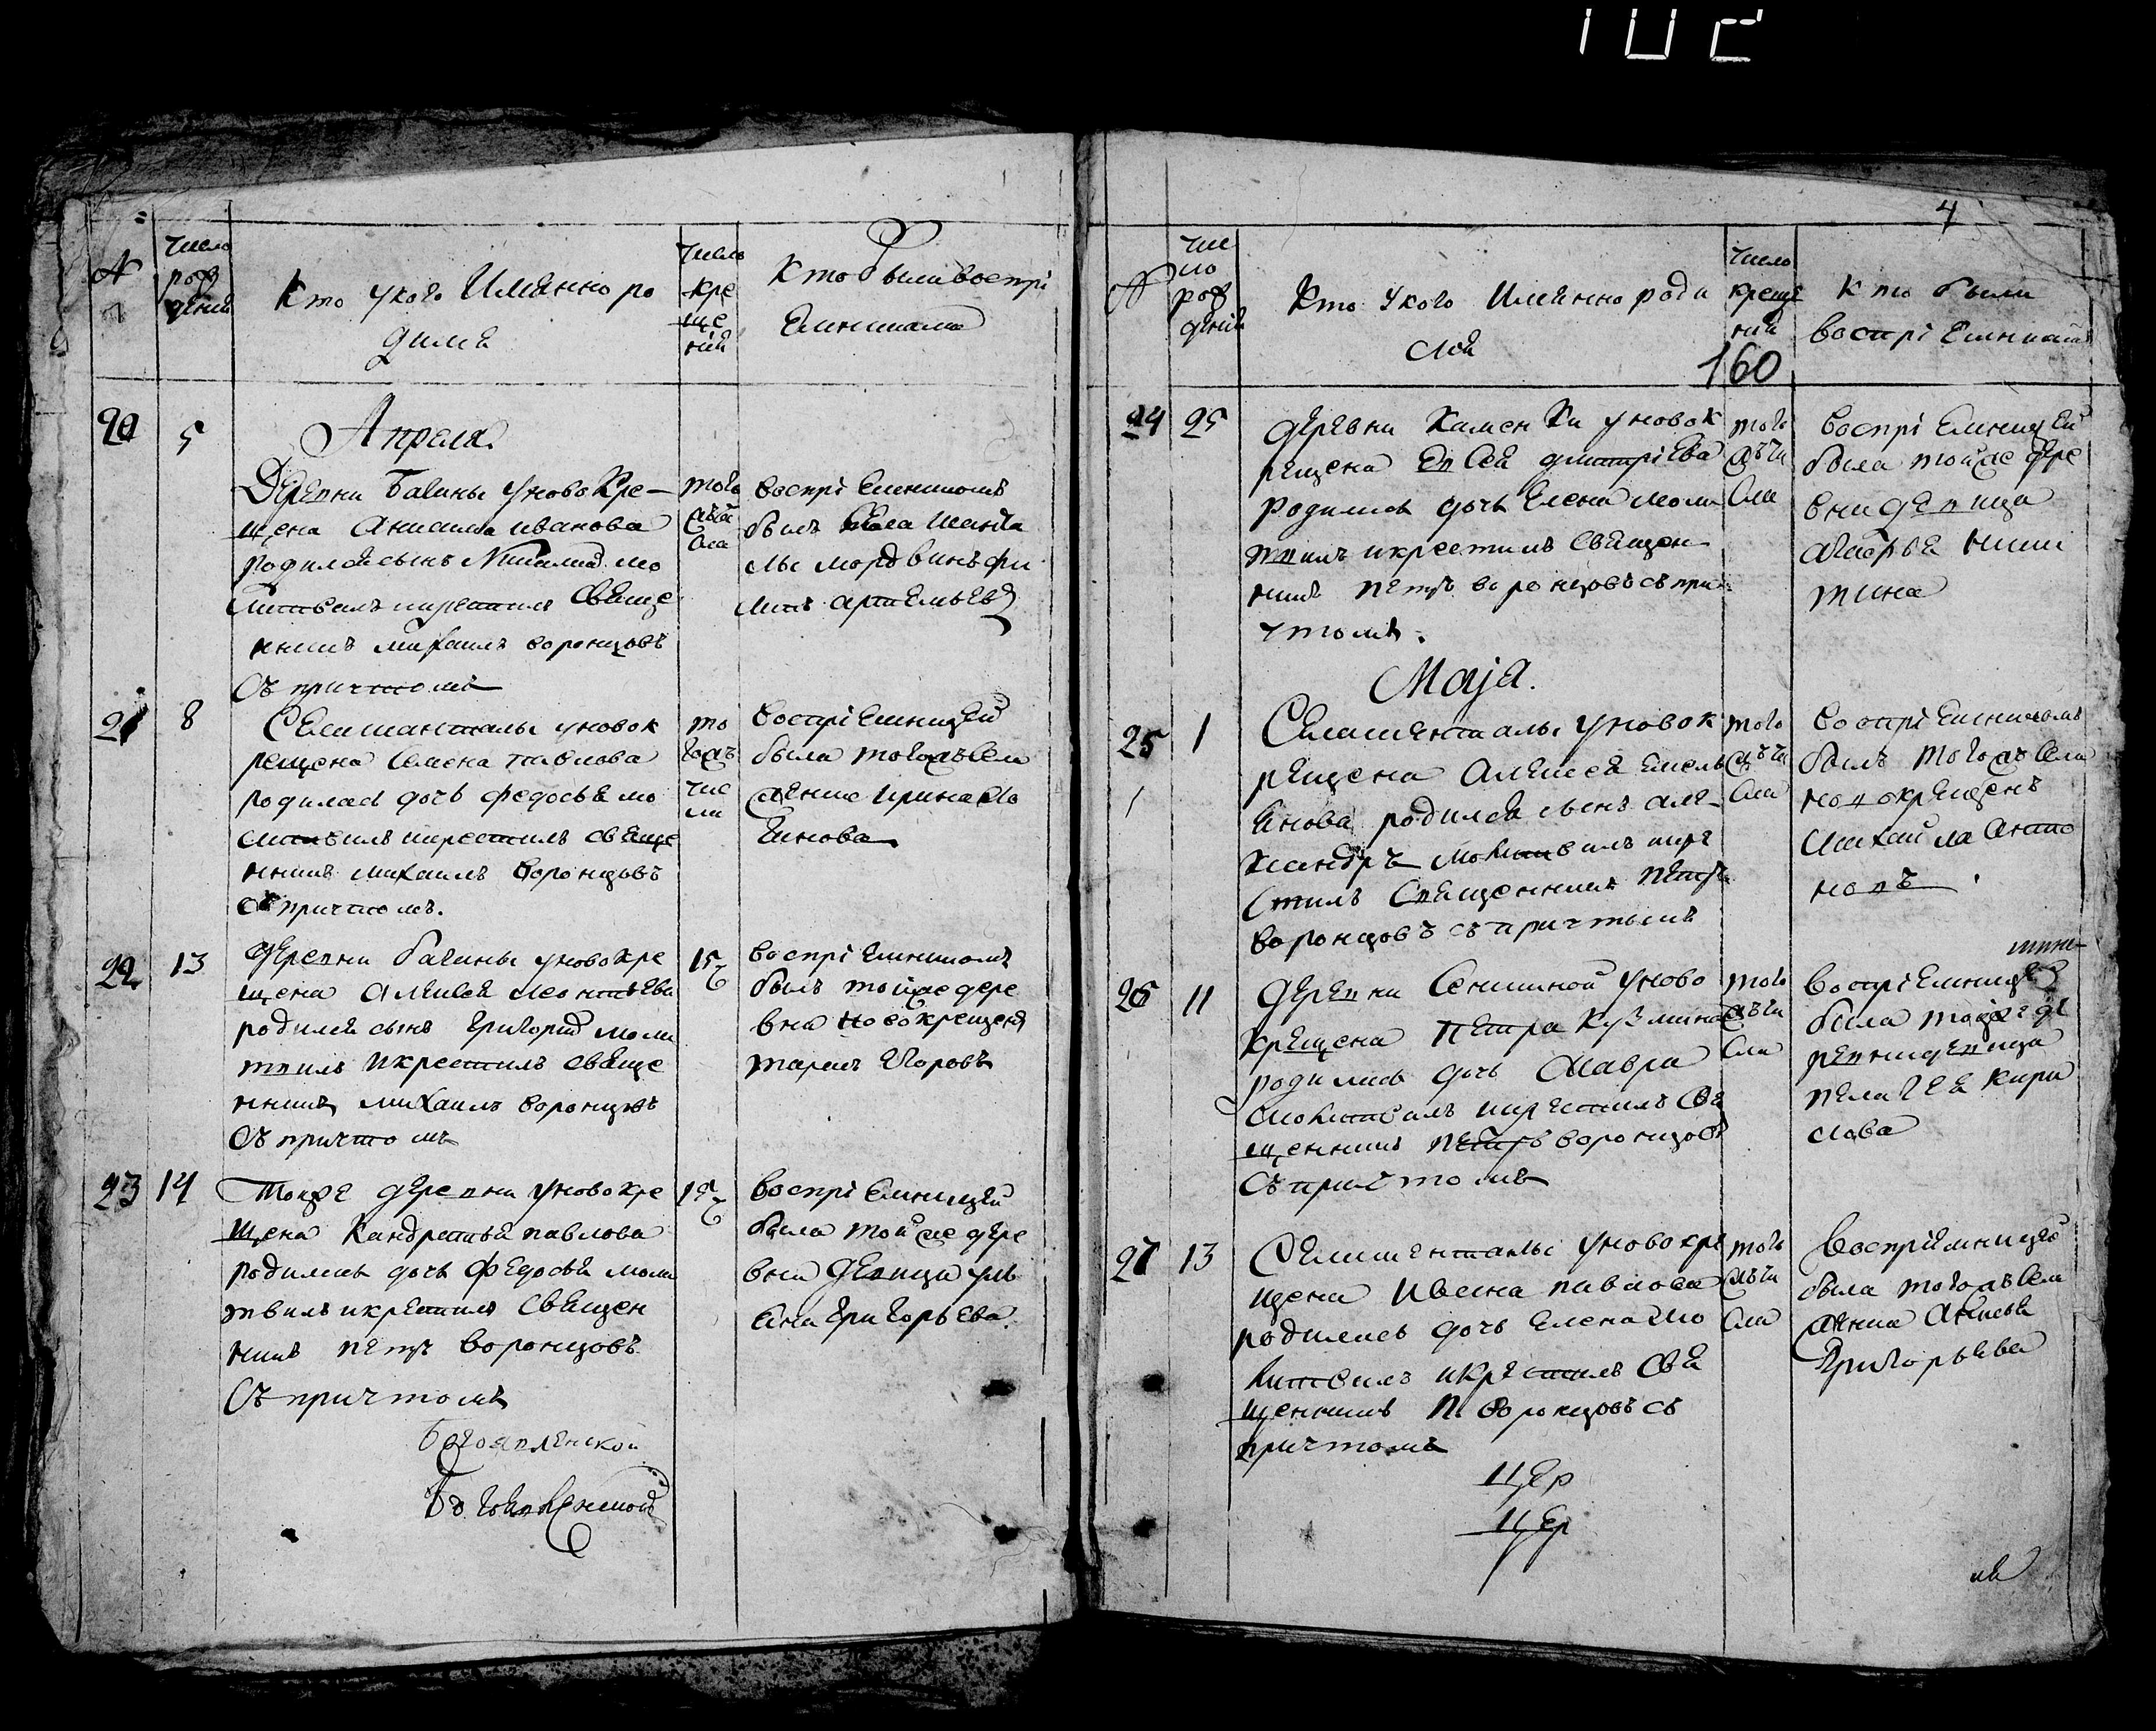 102
№
число
рож
дений
Кто укого Имянно ро
дился
Число
кре
ще
ний
Кто были воспрі
емниками
20
5
Апреля
Деревни Багины уновокре-
щена Ивановa
родился сынъ мо
литвилъ икрестилъ Свяще
нникъ михаилъ воронцовъ
Съ причтомъ
того
воспріемникомъ
былъ села Шанта
лы мордвинъ фи
липъ артемьевъ
21
8
Села шанталы уновок
рещена Семена павлова
родилась дочь федосья мо
литвилъ икрестилъ свяще
нникъ михаилъ воронцовъ
съ причтомъ.
то
гожъ
чис
ла
воспріемницей
была тогожъ села
Ирина
22
13
деревни багины уновокре
щена алексея леонтьева
родился сынъ григорий моли
твилъ икрестилъ свяще
нникъ михаилъ воронцовъ
Съ причтомъ
15
воспріемникомъ
былъ тойже дере
вни новокрещенъ
Егоровъ
23
14
Тойже деревни уновокре
щена Кандратья павлова
родилась дочь Федосья моли
твилъ икрестилъ Священ
никъ петръ воронцовъ
Съ причтомъ
15
воспріемницей
была тойже дере
вни девица уль
яна григорьева.
Богоявленской
Богоявленской
4
№
чис
ло
рож
дений
Кто укого Имянно роди
лся
Число
креще
ний
160
Кто были
воспріемникам
24
25
деревни Каменки уновок
рещена дмитріева
родилась дочь Елена моли
твилъ икрестилъ Священ
никъ петръ воронцовъ съ при
чтомъ.
того
жъ чи
сла
воспріемницей
была тойже дере
вни девица
ники
тина
Маја.
25
1
Села шенталы уновок
рещена Алексея емель
янова родился сынъ але-
ксандръ молитвилъ икре
стилъ Священникъ петръ
воронцовъ съ причтомъ
того
жъ чи
сла
воспріемникомъ
былъ тогожъ села
новокрещенъ
михайла Анто
новъ.
26
11
деревни Сенькиной уново
крещена петра Кузмина
родилась дочь Мавра
молитвилъ икрестилъ Свя
щенникъ петръ воронцовъ
Съ причтомъ
того
жъ чи
сла
воспріемницей
была тойже де
ревни девица
пелагея кири
лова
27
13
Села шенталы уновокре
щена Ивана павлова
родилась дочь Елена мо
литвилъ икрестилъ Свя
щенникъ П. воронцовъ съ
причтомъ
того
жъ чи
сла
воспріемницей
была тогожъ села
Григорьева
цер
цер